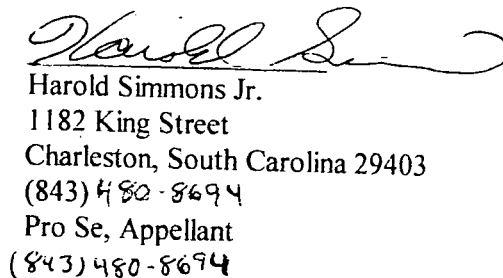 Harold Sim
Harold Simmons Jr.
1182 King Street
Charleston, South Carolina 29403
(843) 480-8694
Pro Se, Appellant
(843) 480-8694